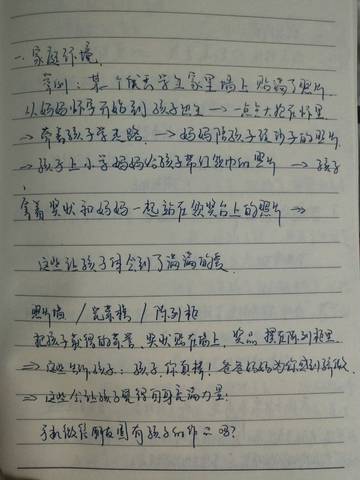 一、家庭环境
案例：某个优秀学生家里墙上贴满了照片
从妈妈怀孕开始到孩子出生 → 一点点大抱在怀里
→ 牵着孩子学走路 → 妈妈陪孩子玩沙子的照片
→ 孩子上小学妈妈给孩子带红领巾的照片 → 孩子
拿着奖状和妈妈一起站在领奖台上的照片 ⇒
这些让孩子体会到了满满的爱
照片墙 / 荣誉栏 / 陈列柜
把孩子获得的荣誉、奖状贴在墙上，奖品摆在陈列柜里
⇒ 这些告诉孩子：孩子，你真棒！爸爸妈妈为你感到骄傲
⇒ 这些会让孩子觉得自身充满力量！
手机微信朋友圈有孩子的